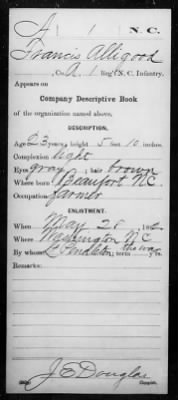 A | 1 | N. C.
Francis Alligood
A. 1 Reg't N. C. Infantry.
Appears on
Company Descriptive Book
of the organization named above.
DESCRIPTION.
Age 23 years; height 5 feet 10 inches.
Complexion light
Eyes gray ; hair brown
Where born Beaufort N.C.
Occupation farmer
ENLISTMENT.
When May 28, 1862
Where Washington N C
By whom ; term the war y'rs.
Remarks:
J. E. Douglas
Copyist.